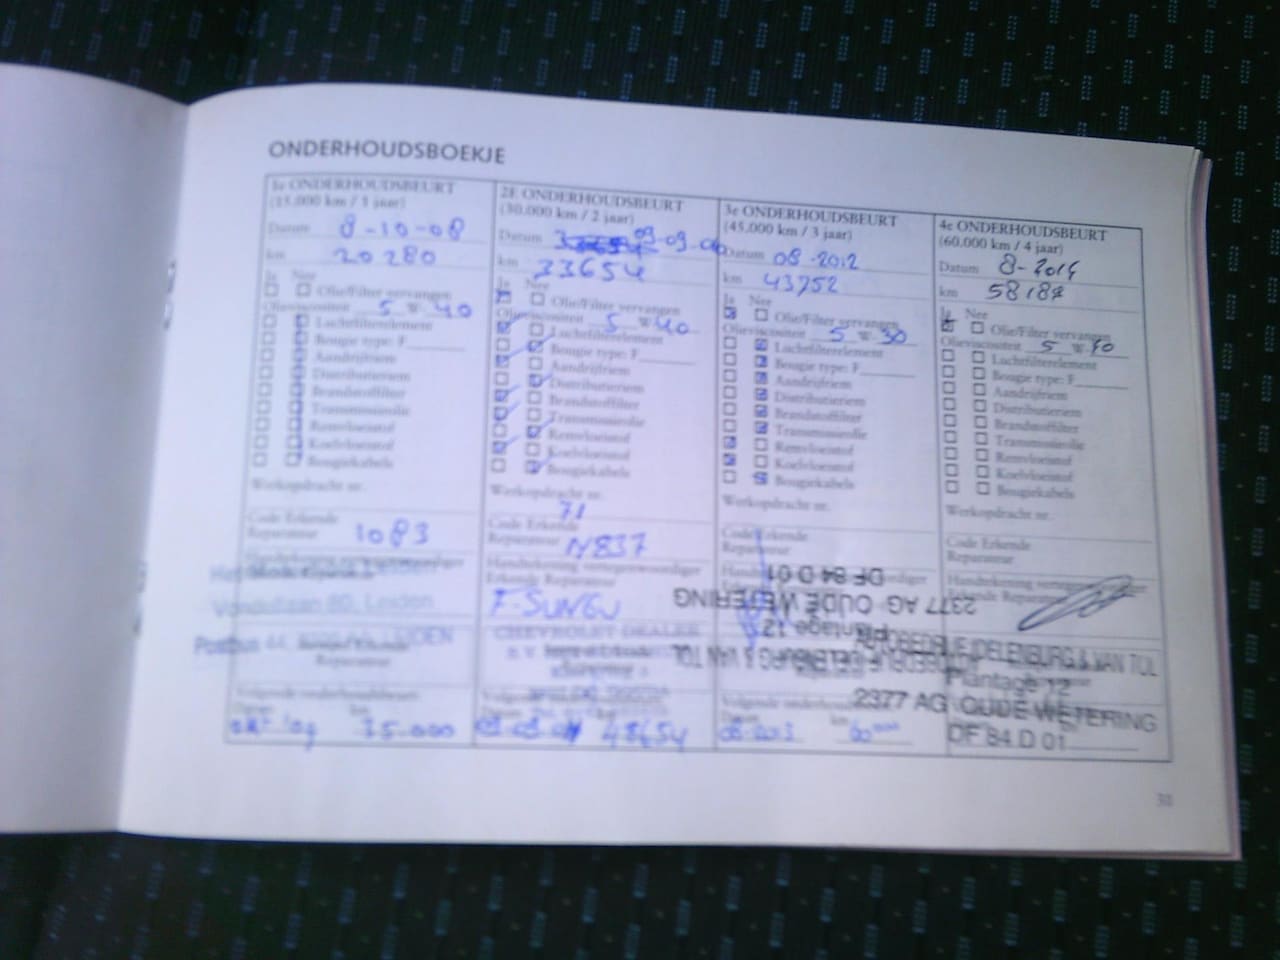 ONDERHOUDSBOEKJE
1e ONDERHOUDSBEURT
(15.000 km / 1 jaar)
Datum 8-10-08
km 20280
Ja Nee
Olie/Filter vervangen
Olieviscositeit 5 W 40
Luchtfilterelement
Bougie type: F
Aandrijfriem
Distributieriem
Brandstoffilter
Transmissieolie
Remvloeistof
Koelvloeistof
Bougiekabels
Werkopdracht nr.
Code Erkende
Reparateur 1083
Vondellaan 80, Leiden
Postbus 44, LEIDEN
Reparateur
Volgende onderhoudsbeurt
Datum km
okt '09 35.000
2E ONDERHOUDSBEURT
(30.000 km / 2 jaar)
Datum 09-09-
km 33654
Ja Nee
Olie/Filter vervangen
Olieviscositeit 5 W 40
Luchtfilterelement
Bougie type: F
Aandrijfriem
Distributieriem
Brandstoffilter
Transmissieolie
Remvloeistof
Koelvloeistof
Bougiekabels
Werkopdracht nr.
71
Code Erkende
Reparateur N837
Handtekening vertegenwoordiger
Erkende Reparateur
F. SUNGU
CHEVROLET DEALER
Volgende onderhoudsbeurt
Datum km
48654
3e ONDERHOUDSBEURT
(45.000 km / 3 jaar)
Datum 08-2012
km 43752
Ja Nee
Olie/Filter vervangen
Olieviscositeit 5 W 30
Luchtfilterelement
Bougie type: F
Aandrijfriem
Distributieriem
Brandstoffilter
Transmissieolie
Remvloeistof
Koelvloeistof
Bougiekabels
Werkopdracht nr.
Code Erkende
Reparateur
DF 84 D 01
2377 AG OUDE WETERING
Plantage 12
AUTOBEDRIJF IDELENBURG & VAN TOL
Volgende onderhoudsbeurt
Datum km
08-2013 60000
4e ONDERHOUDSBEURT
(60.000 km / 4 jaar)
Datum 8-2014
km 58187
Ja Nee
Olie/Filter vervangen
Olieviscositeit 5 W 40
Luchtfilterelement
Bougie type: F
Aandrijfriem
Distributieriem
Brandstoffilter
Transmissieolie
Remvloeistof
Koelvloeistof
Bougiekabels
Werkopdracht nr.
Code Erkende
Reparateur
Handtekening vertegenwoordiger
Erkende Reparateur
AUTOBEDRIJF IDELENBURG & VAN TOL
Plantage 12
2377 AG OUDE WETERING
DF 84 D 01